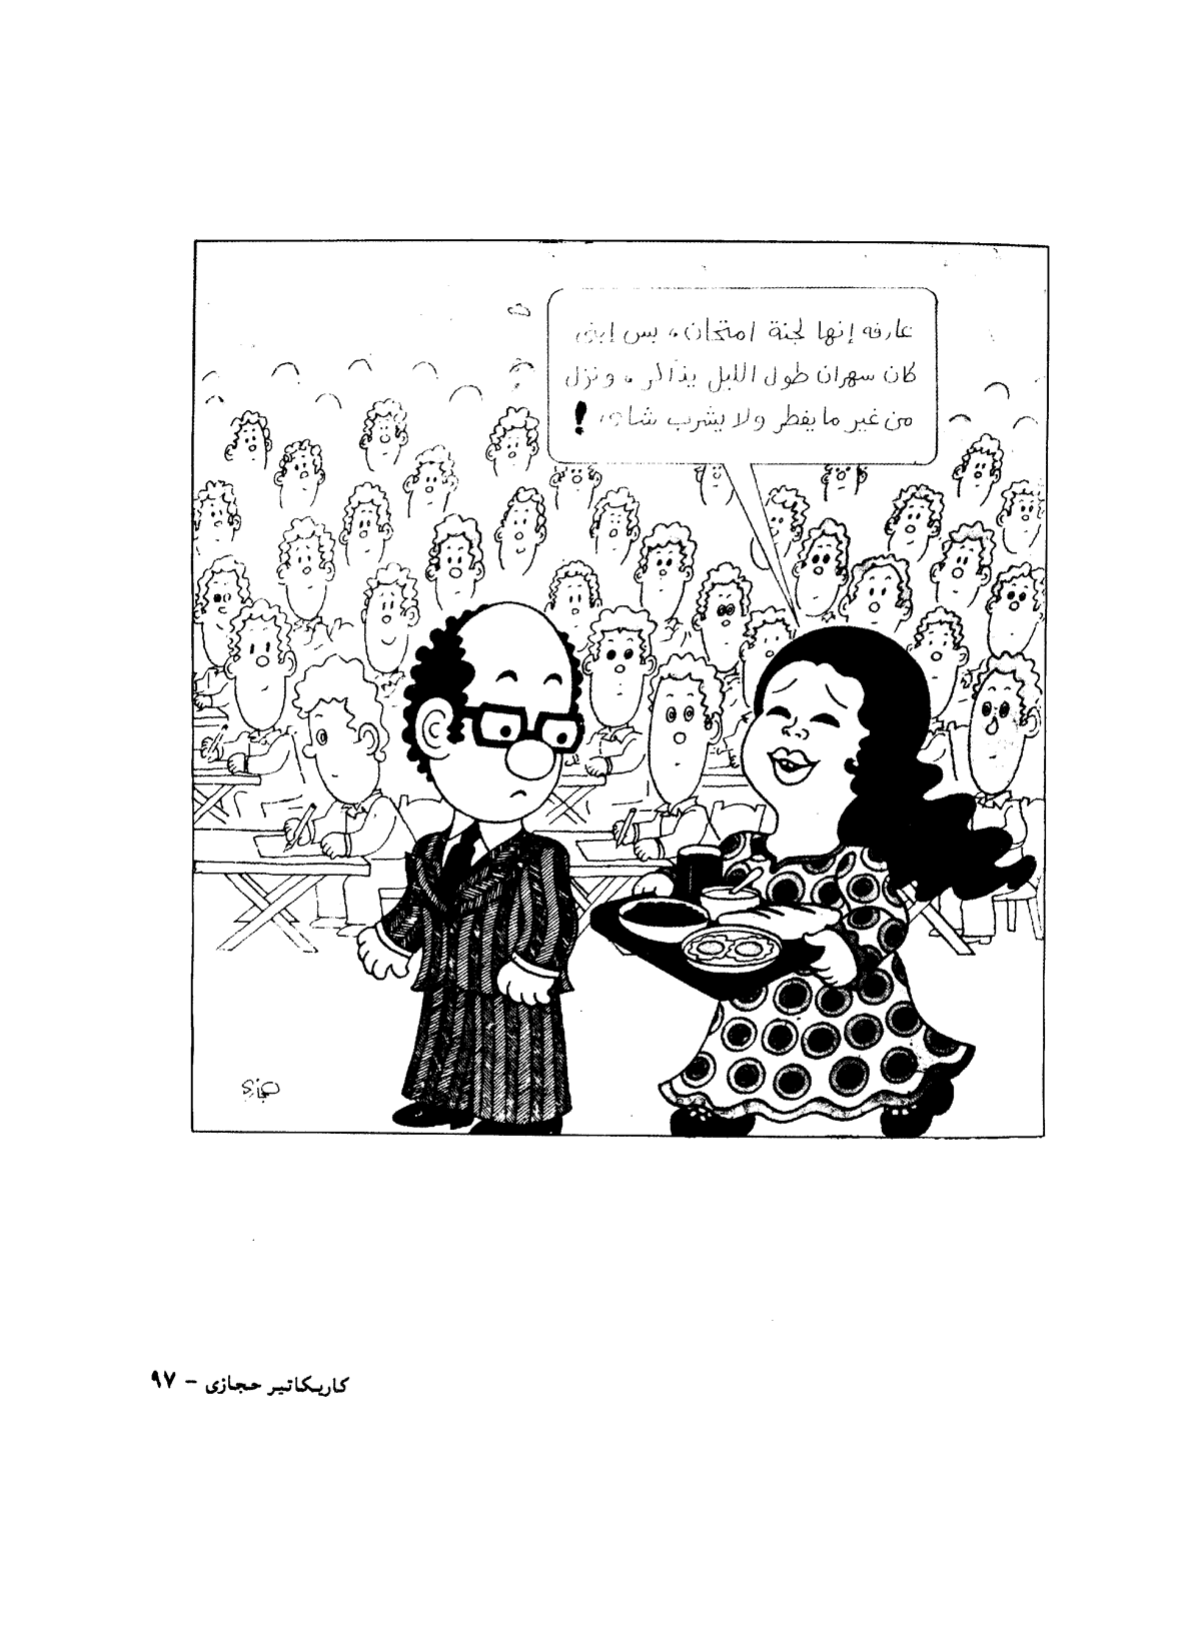 عارفه إنها لجنة امتحان، بس ابنى
كان سهران طول الليل يذاكر، ونزل
من غير ما يفطر ولا يشرب شاى !
حجازى
كاريكاتير حجازى - ٩٧